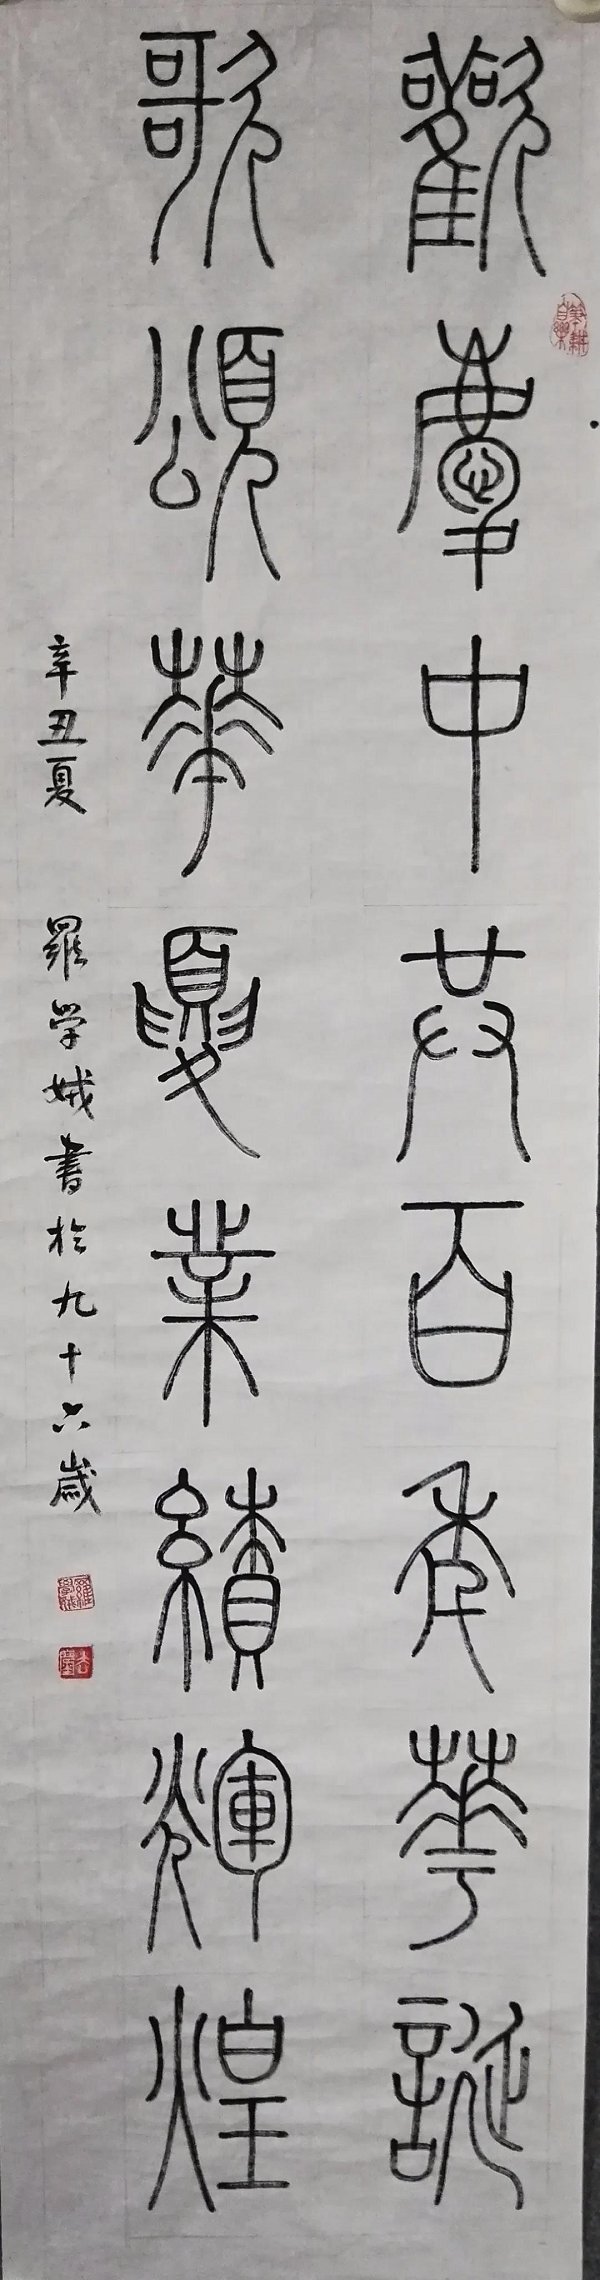 歡慶中共百年華誕
歌頌華夏業績輝煌
辛丑夏 羅学娥書於九十六歲
筆耕自樂